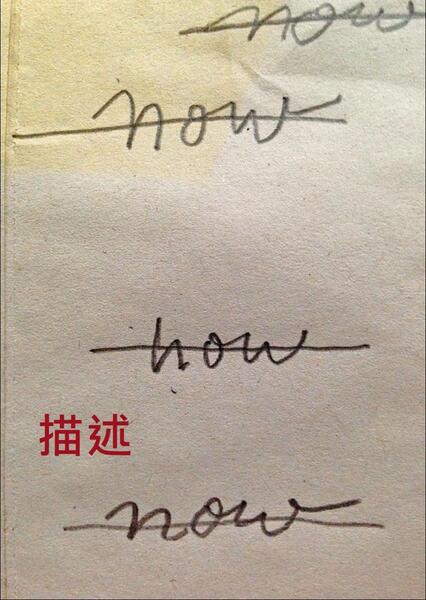 now
now
now
描述
now